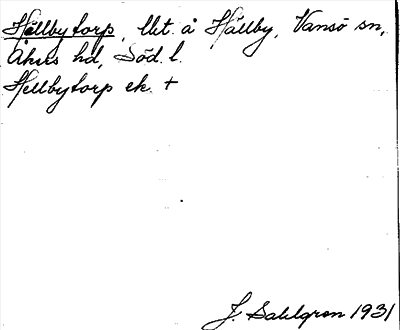 Hällbytorp, lht. å Hällby, Vansö sn,
Åkers hd, Söd. l.
Hellbytorp ek. +
J. Sahlgren 1931